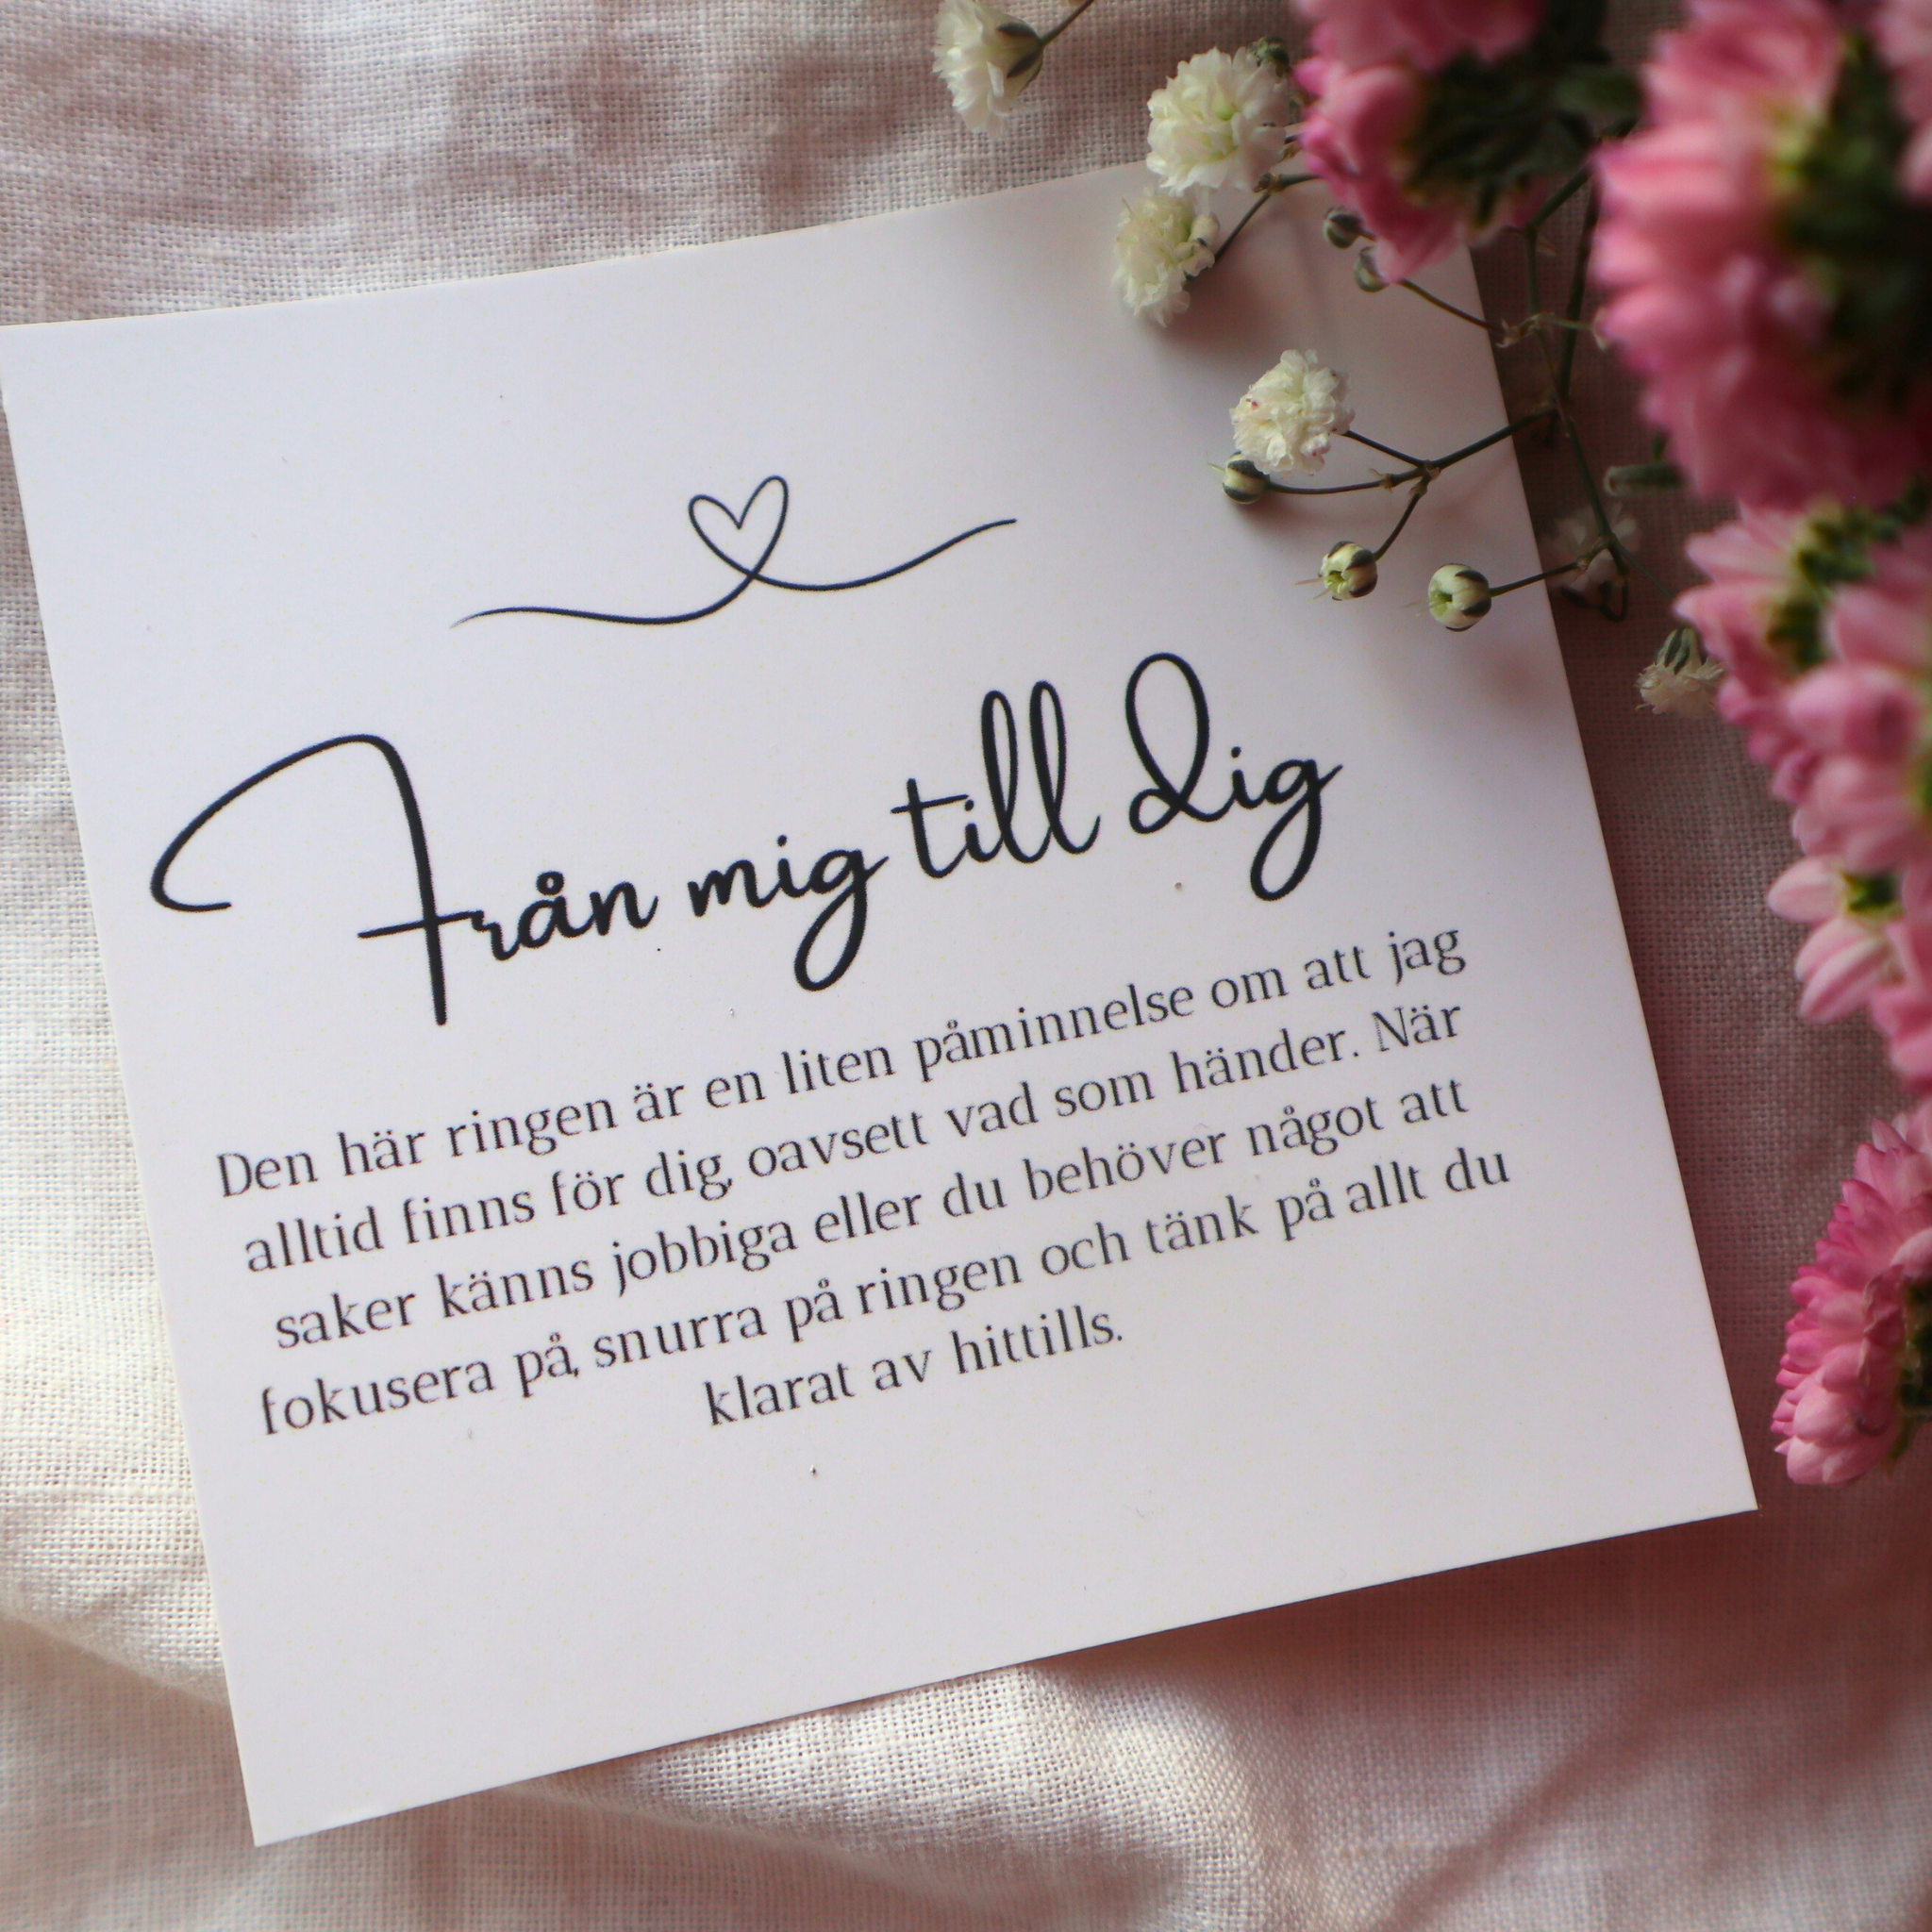 Från mig till dig
Den här ringen är en liten påminnelse om att jag
alltid finns för dig, oavsett vad som händer. När
saker känns jobbiga eller du behöver något att
fokusera på, snurra på ringen och tänk på allt du
klarat av hittills.